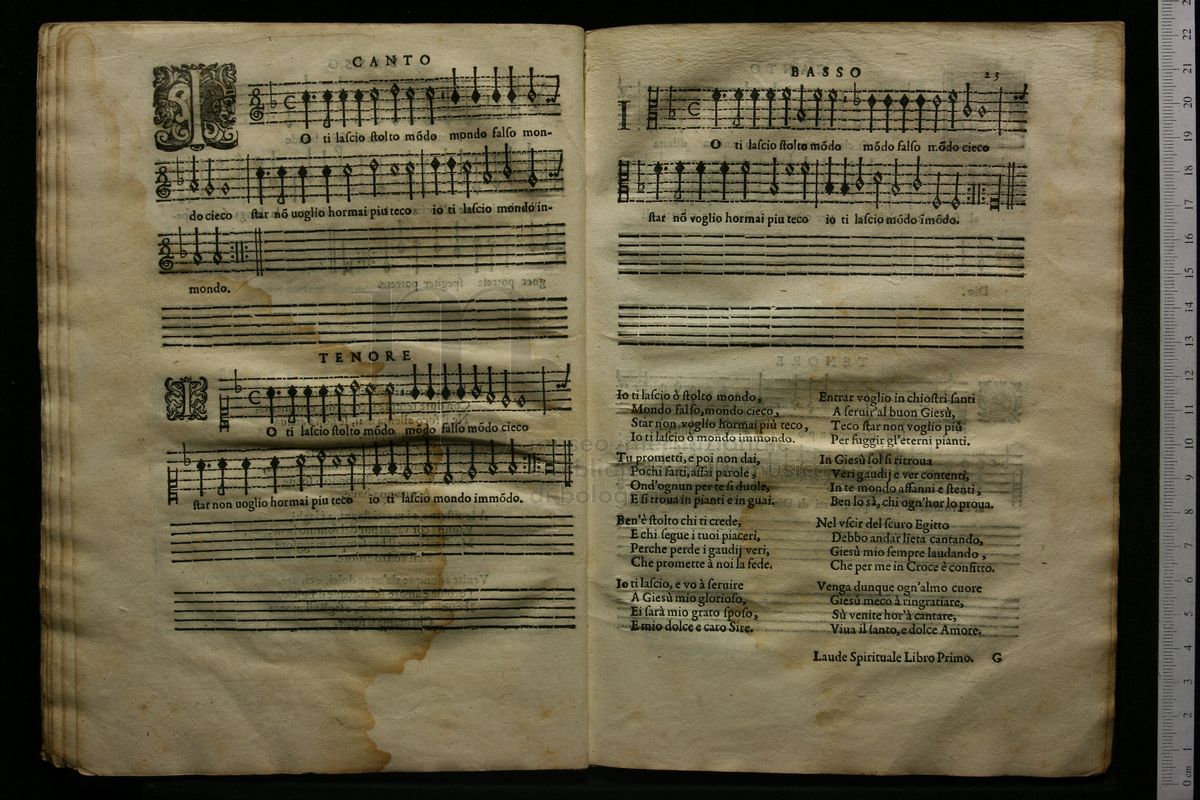 CANTO
O ti lascio stolto mōdo mondo falso mon-
do cieco star nō uoglio hormai piu teco io ti lascio mondo im-
mondo.
TENORE
O ti lascio stolto mōdo mōdo falso mōdo cieco
star non uoglio hormai piu teco io ti lascio mondo immōdo.
BASSO 25
I
O ti lascio stolto mōdo mōdo falso mōdo cieco
star nō voglio hormai piu teco io ti lascio mōdo īmōdo.
Io ti lascio ò stolto mondo,
Mondo falso, mondo cieco,
Star non voglio hormai più teco,
Io ti lascio ò mondo immondo.
Tu prometti, e poi non dai,
Pochi fatti, assai parole,
Ond'ognun per te si duole,
E si troua in pianti e in guai.
Ben'è stolto chi ti crede,
E chi segue i tuoi piaceri,
Perche perde i gaudij veri,
Che promette à noi la fede.
Io ti lascio, e vo à seruire
A Giesù mio glorioso,
Ei sarà mio grato sposo,
E mio dolce e caro Sire.
Entrar voglio in chiostri santi
A seruir'al buon Giesù,
Teco star non voglio più
Per fuggir gl'eterni pianti.
In Giesù sol si ritroua
Veri gaudij e ver contenti,
In te mondo affanni e stenti,
Ben lo sà, chi ogn'hor lo proua.
Nel vscir del scuro Egitto
Debbo andar lieta cantando,
Giesù mio sempre laudando,
Che per me in Croce è confitto.
Venga dunque ogn'almo cuore
Giesù meco à ringratiare,
Sù venite hor'à cantare,
Viua il santo, e dolce Amore.
Laude Spirituale Libro Primo. G